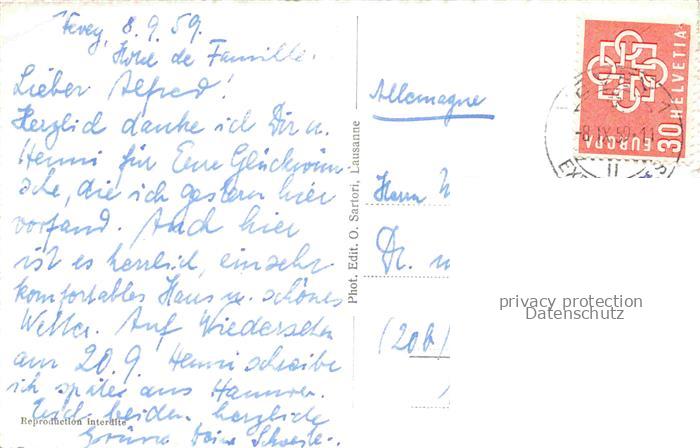 Vevey, 8.9.59.
Hotel de Famille.
Lieber Alfred!
Herzlich danke ich Dir u.
Henni für Eure Glückwün-
sche, die ich gestern hier
vorfand. Auch hier
ist es herrlich, ein sehr
komfortables Haus u. schönes
Wetter. Auf Wiedersehen
am 20.9! Henni schreibe
ich später aus Hannover.
Euch beiden herzliche
Grüsse Deine Schwester.
Reproduction interdite
Phot. Edit. O. Sartori, Lausanne
Allemagne
Herrn
Dr.
(20b)
HELVETIA
30
EUROPA
-8.IX.59-11
privacy protection
Datenschutz